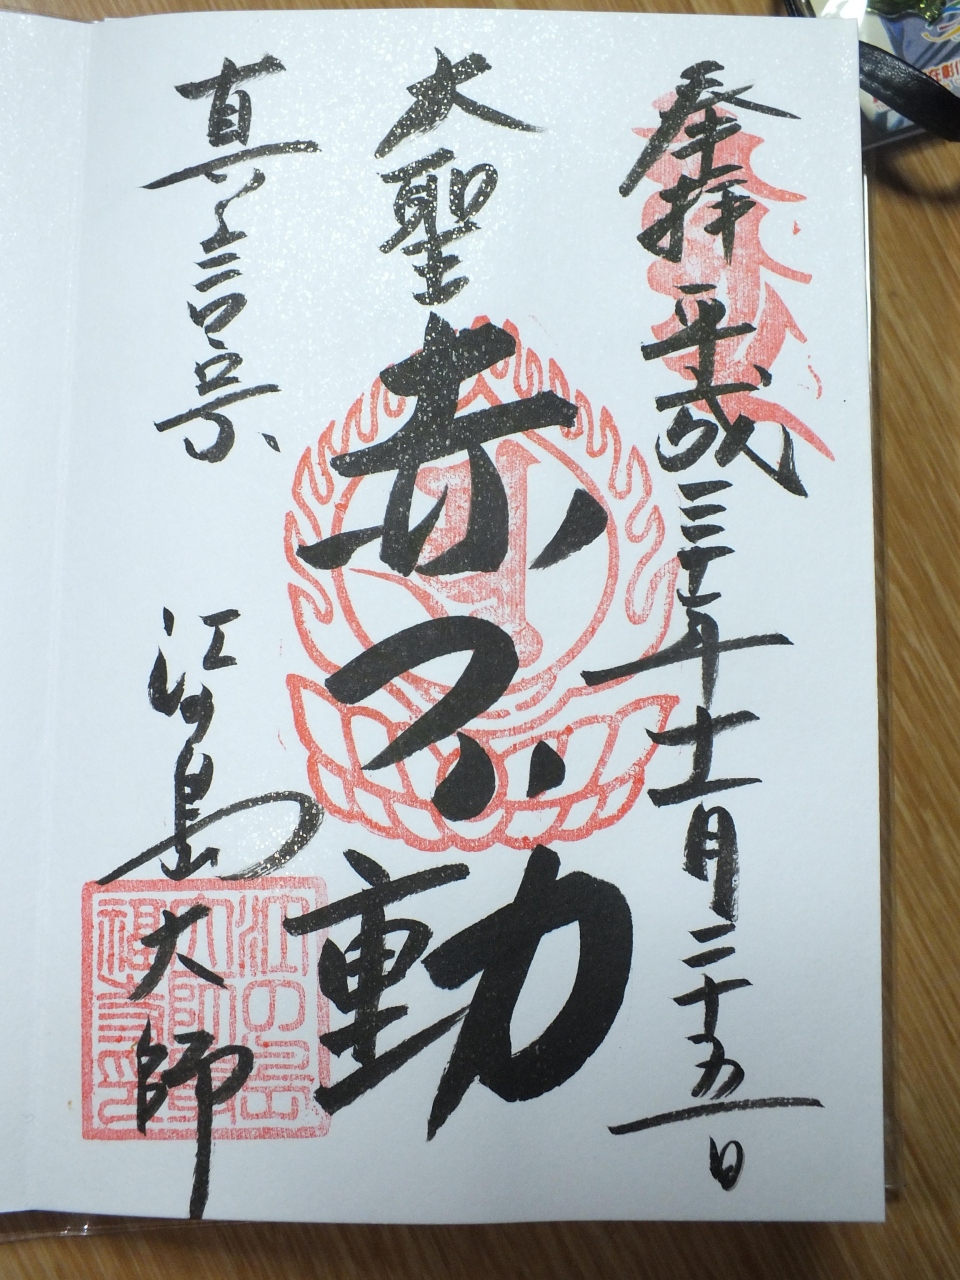 奉拝 平成三十年十一月二十五日
大聖 赤不動
真言宗 江の島大師
江の島